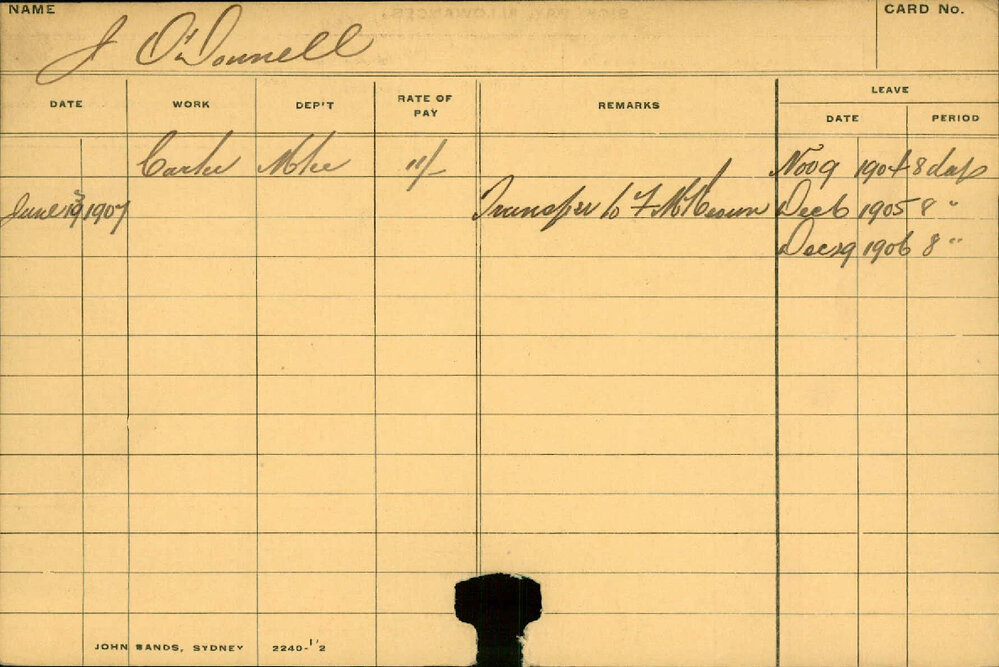 NAME
CARD No.
J O'Donnell
DATE WORK DEP'T RATE OF PAY REMARKS LEAVE
DATE PERIOD
Carter 11/- Nov 9 1904 8 days
June 19 1907 Transfer to F McKeown Dec 6 1905 8 "
Dec 29 1906 8 "
JOHN SANDS, SYDNEY 2240-1'2